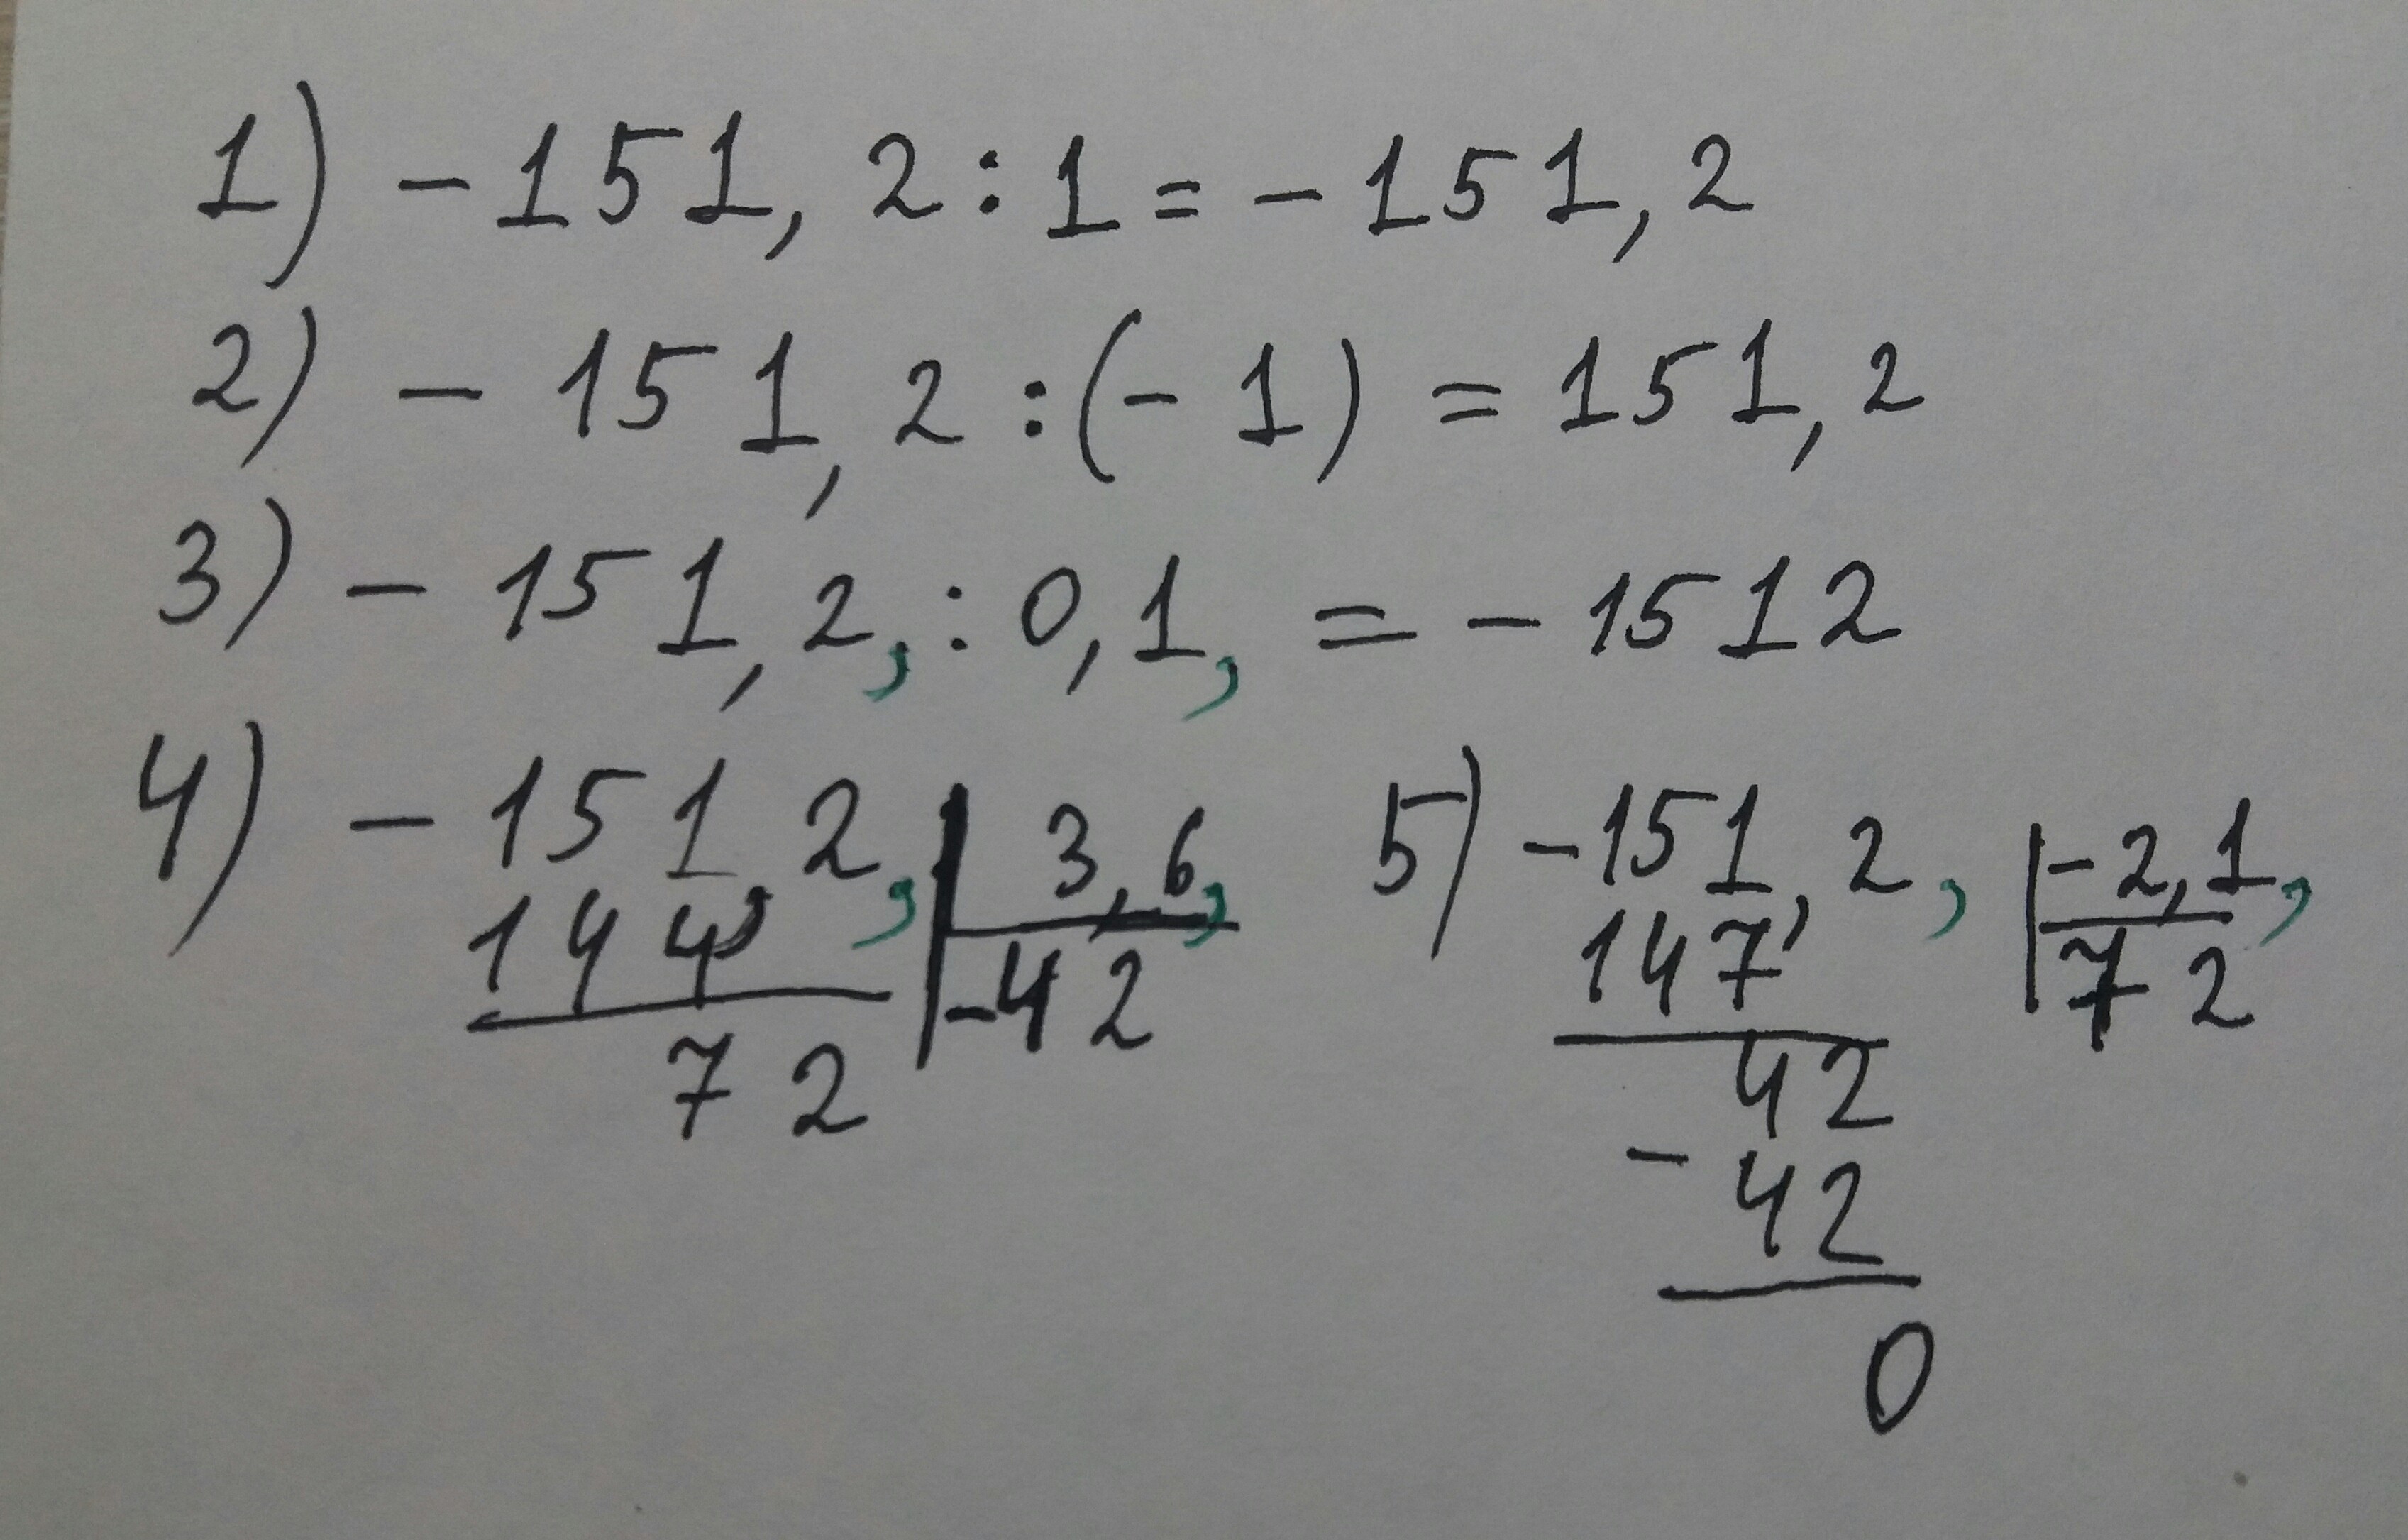 1) - 151, 2 : 1 = - 151, 2
2) - 151, 2 : (- 1) = 151, 2
3) - 151, 2, : 0, 1, = - 1512
4) - 151, 2, | 3, 6,
144,
-42
72
5) -151, 2, | -2, 1,
147,
72
42
- 42
0